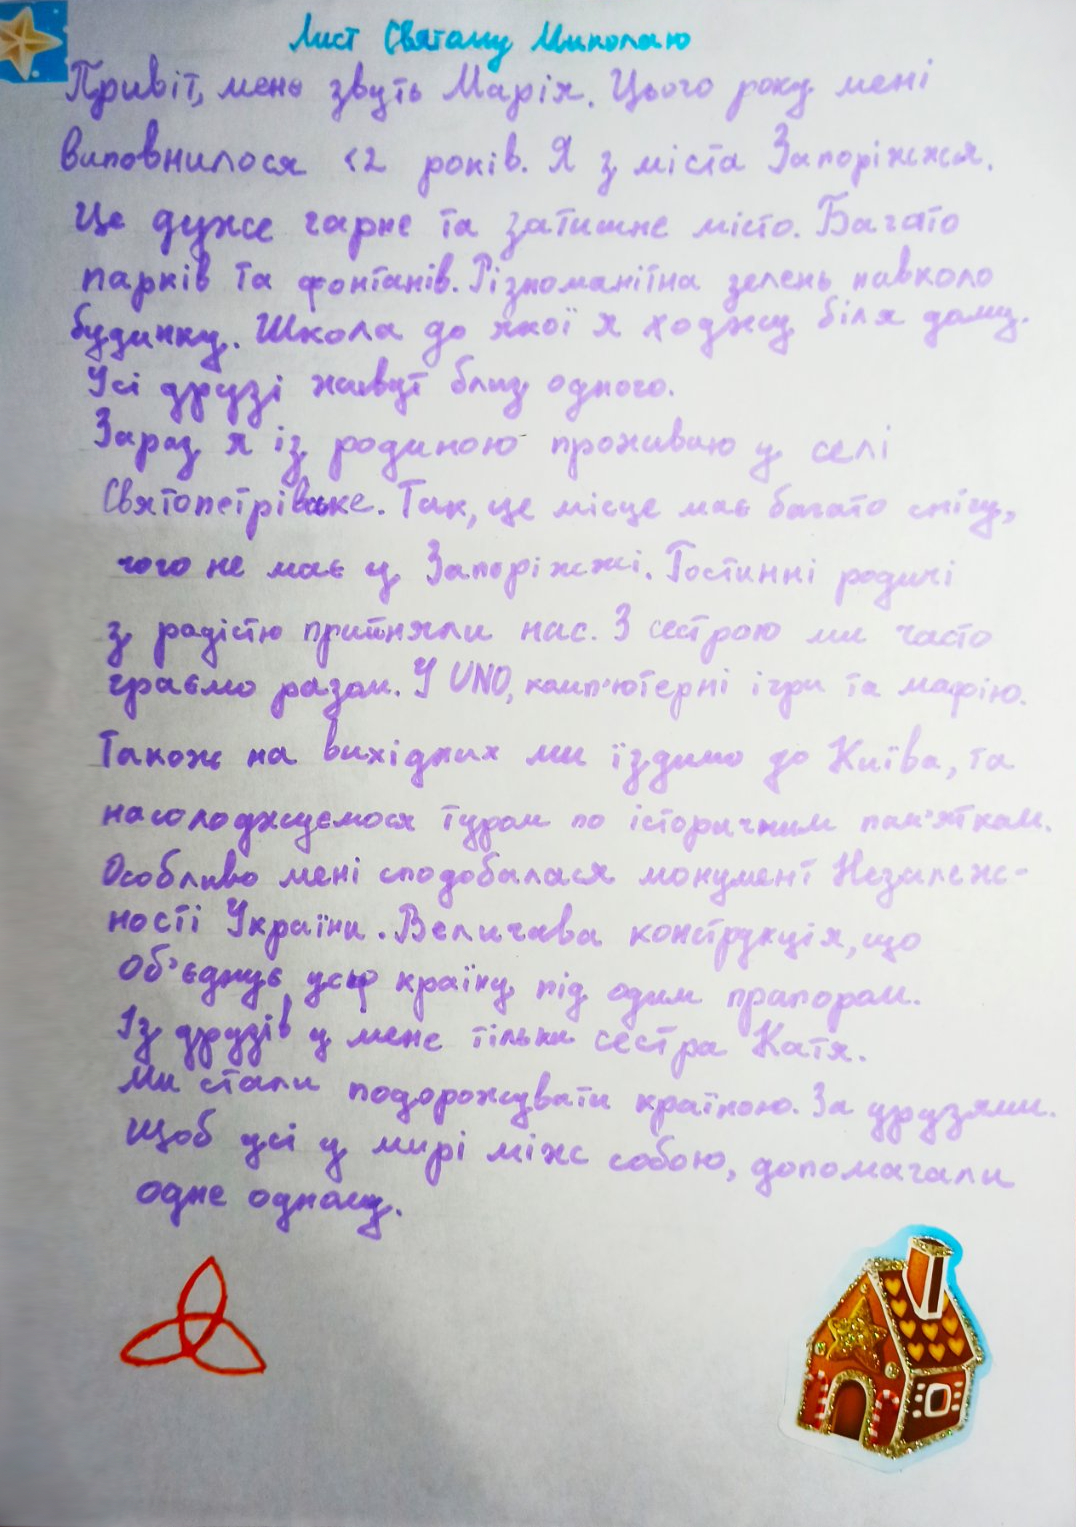 Лист Святому Миколаю
Привіт, мене звуть Марія. Цього року мені
виповнилося 12 років. Я з міста Запоріжжя.
Це дуже гарне та затишне місто. Багато
парків та фонтанів. Різноманітна зелень навколо
будинку. Школа до якої я ходжу біля дому.
Усі друзі живут близ одного.
Зараз я із родиною проживаю у селі
Святопетрівське. Так, це місце має багато снігу,
чого не має у Запоріжжі. Гостинні родичі
з радістю прийняли нас. З сестрою ми часто
граємо разом. У UNO, комп'ютерні ігри та мафію.
Також на вихідних ми їздимо до Київа, та
насолоджуємося туром по історичним пам'яткам.
Особливо мені сподобалася монумент Незалеж-
ності України. Велична конструкція, що
об'єднує усю країну під одим прапором.
Із друзів у мене тільки сестра Катя.
Ми стали подорожувати країною. За друзями.
Щоб усі у мирі між собою, допомагали
одне одному.